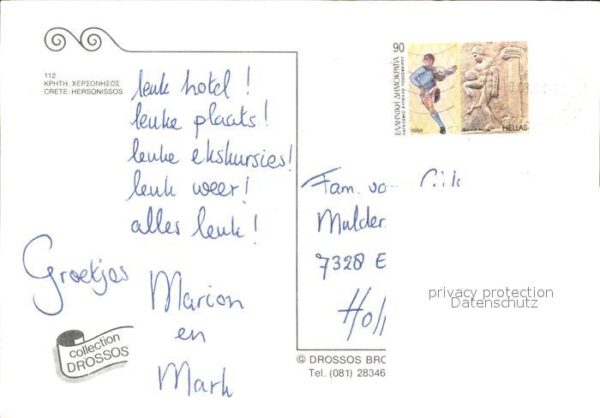 112
ΚΡΗΤΗ: ΧΕΡΣΟΝΗΣΟΣ
CRETE: HERSONISSOS
leuk hotel!
leuke plaats!
leuke ekskursies!
leuk weer!
alles leuk!
Groetjes
Marion
en
Mark
collection
DROSSOS
90
ΕΛΛΗΝΙΚΗ ΔΗΜΟΚΡΑΤΙΑ
ΠΑΓΚΟΣΜΙΟ ΚΥΠΕΛΛΟ ΠΟΔΟΣΦΑΙΡΟΥ
1994
HELLAS
Fam. va
Mulder
7328 E
Holl
privacy protection
Datenschutz
© DROSSOS BRO
Tel. (081) 28346